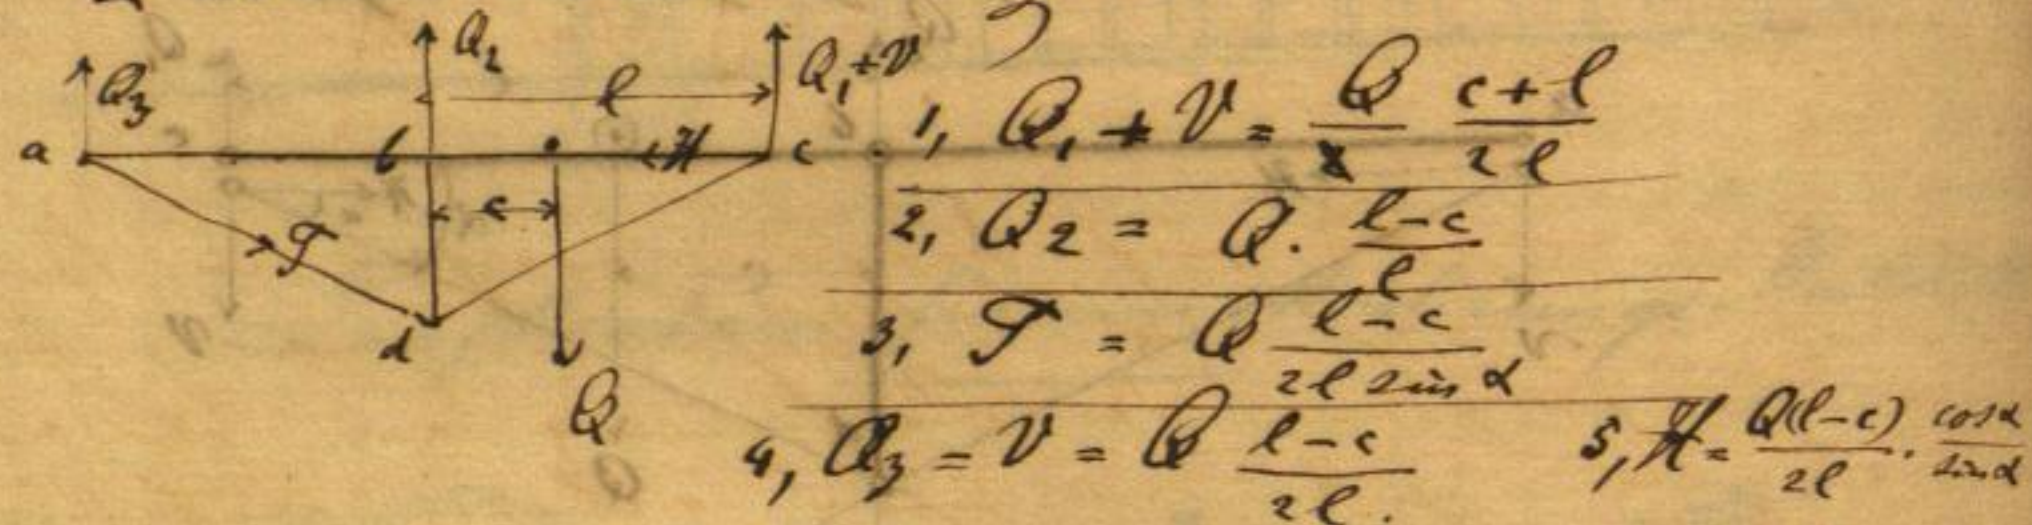 Q₂
Q₁+V
Q₃
l
a
b
H
c
c
T
d
Q
1, Q₁ + V = Q (c+l)/(2l)
2, Q2 = Q. (l-c)/l
3, T = Q (l-c)/(2l sin α)
4, Q₃ = V = Q (l-c)/(2l).
5, H = Q(l-c)/(2l) . cosα/sinα